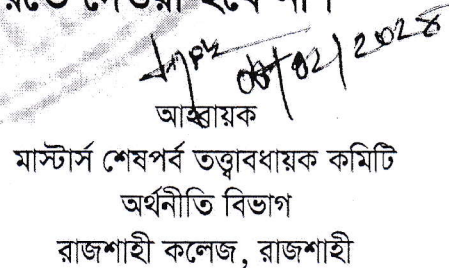 দেওয়া হবে না।
০৮/০২/২০২৪
আহ্বায়ক
মাস্টার্স শেষপর্ব তত্ত্বাবধায়ক কমিটি
অর্থনীতি বিভাগ
রাজশাহী কলেজ, রাজশাহী